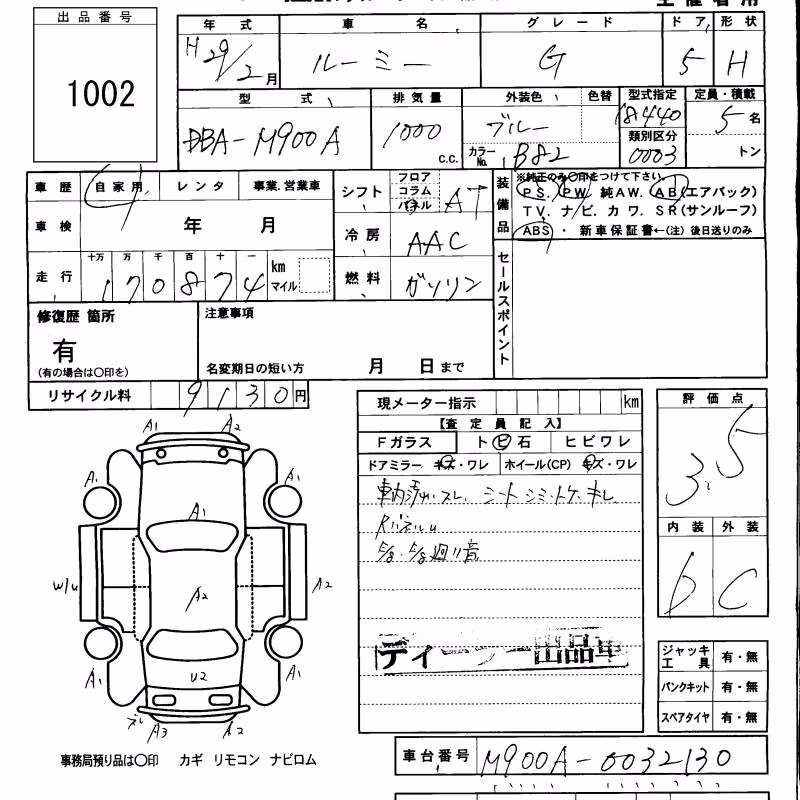 出品番号
1002
年式 車名 グレード ドア 形状
H 29/2月 ルーミー G 5 H
型式 排気量 外装色 色替 型式指定 定員・積載
DBA-M900A 1000 C.C. ブルー 18440 5名
カラーNo. B82 類別区分 0003 トン
車歴 自家用 レンタ 事業.営業車
シフト フロア コラム パネル AT
装備品 ※純正のみ○印をつけて下さい。
PS. PW. 純AW. AB(エアバック)
TV. ナビ. カワ. SR(サンルーフ)
ABS・ 新車保証書←(注)後日送りのみ
車検 年 月
冷房 AAC
走行 十万 万 千 百 十 一
170874 km マイル
燃料 ガソリン
セールスポイント
修復歴 箇所
有
(有の場合は○印を)
注意事項
名変期日の短い方 月 日まで
リサイクル料 9130円
現メーター指示 km
【査定員記入】
Fガラス ト ビ 石 ヒビワレ
ドアミラー キズ・ワレ ホイール(CP) キズ・ワレ
車内汚れ.スレ. シート シミ.トケ.キレ
ディーラー出品車
評価点
3.5
内装 外装
D C
A1 A2
A1 A1
A1
W/U A2 A2
A1 U2 A1
A3 A2
ジャッキ工具 有・無
パンクキット 有・無
スペアタイヤ 有・無
事務局預り品は○印 カギ リモコン ナビロム
車台番号 M900A-0032130